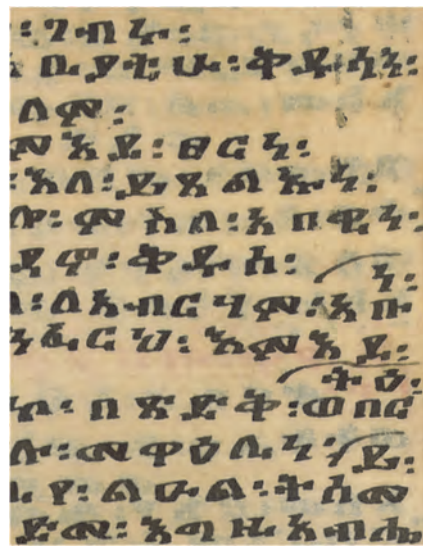 ፡ ገብሩ፡
ቢያቲሁ፡ቅዱሳን፡
ለም፡
ምእደ፡ፀርነ፡
፡እለ፡ይጸልኡነ፡
ሎ፡ምስለ፡አበዊነ፡
ዳኖ፡ቅዱሰ፡
ነ፡
ለ፡ለአብርሃም፡አቡ
ንፍርህ፡እምእደ፡
ትዕ፡
ኮ፡በጽድቅ፡ወበር
ሎ፡መዋዕሊነ፡
ይ፡
የ፡ልዑል፡ትሰመ
ድመ፡እግዚአብሔ